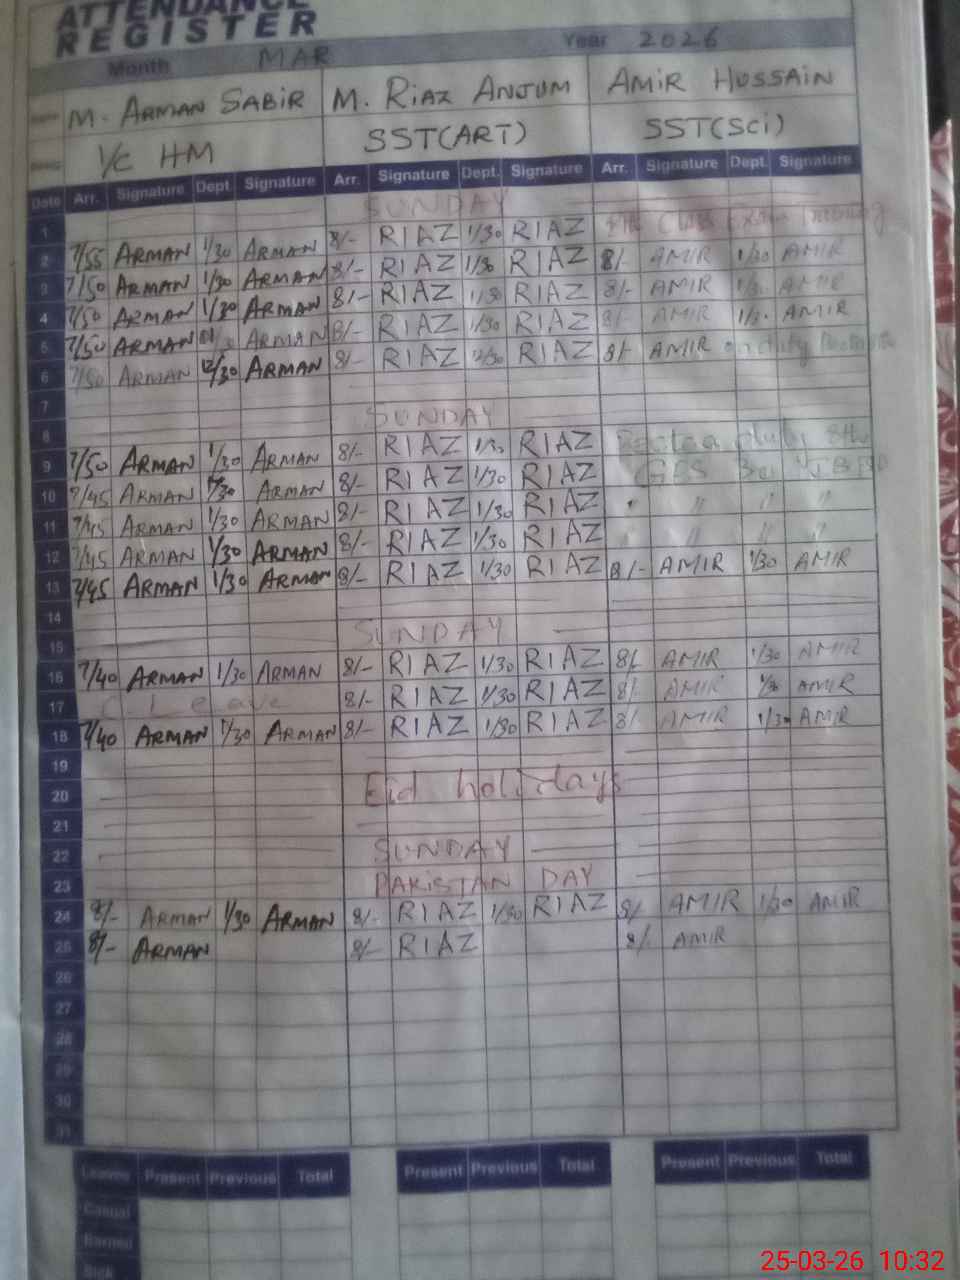 ATTENDANCE
REGISTER
Month MAR Year 2026
Name M. ARMAN SABIR M. RIAZ ANJUM AMIR HUSSAIN
I/C HM SST(ART) SST(Sci)
Date Arr. Signature Dept. Signature Arr. Signature Dept. Signature Arr. Signature Dept. Signature
1 SUNDAY
2 7/55 ARMAN 1/30 ARMAN 8/- RIAZ 1/30 RIAZ 8th Class Exam Training
3 7/50 ARMAN 1/30 ARMAN 8/- RIAZ 1/30 RIAZ 8/- AMIR 1/30 AMIR
4 7/50 ARMAN 1/30 ARMAN 8/- RIAZ 1/30 RIAZ 8/- AMIR 1/30 AMIR
5 7/50 ARMAN ARMAN 8/- RIAZ 1/30 RIAZ 8/- AMIR 1/30 AMIR
6 7/50 ARMAN 12/30 ARMAN 8/- RIAZ 12/30 RIAZ 8/- AMIR on duty
7
8 SUNDAY
9 7/50 ARMAN 1/30 ARMAN 8/- RIAZ 1/30 RIAZ duty 8th
10 7/45 ARMAN 1/30 ARMAN 8/- RIAZ 1/30 RIAZ
11 7/45 ARMAN 1/30 ARMAN 8/- RIAZ 1/30 RIAZ " " " "
12 7/45 ARMAN 1/30 ARMAN 8/- RIAZ 1/30 RIAZ " " " "
13 7/45 ARMAN 1/30 ARMAN 8/- RIAZ 1/30 RIAZ 8/- AMIR 1/30 AMIR
14
15 SUNDAY
16 7/40 ARMAN 1/30 ARMAN 8/- RIAZ 1/30 RIAZ 8/- AMIR 1/30 AMIR
17 C Leave 8/- RIAZ 1/30 RIAZ 8/- AMIR 1/30 AMIR
18 7/40 ARMAN 1/30 ARMAN 8/- RIAZ 1/30 RIAZ 8/- AMIR 1/30 AMIR
19
20 Eid holidays
21
22 SUNDAY
23 PAKISTAN DAY
24 8/- ARMAN 1/30 ARMAN 8/- RIAZ 1/30 RIAZ 8/- AMIR 1/30 AMIR
25 8/- ARMAN 8/- RIAZ 8/- AMIR
26
27
28
29
30
31
Leaves Present Previous Total Present Previous Total Present Previous Total
Casual
Earned
Sick
25-03-26 10:32